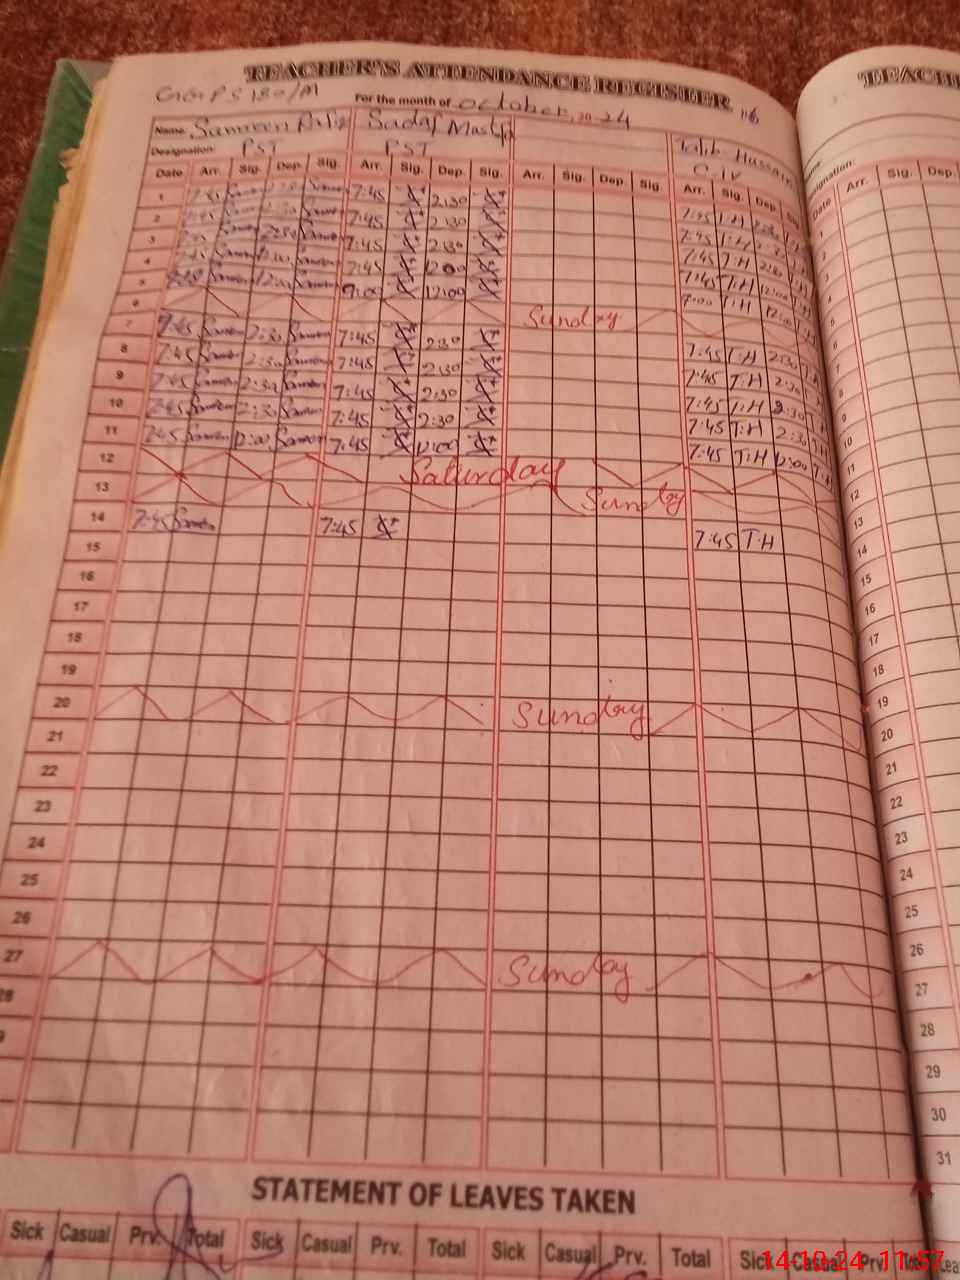 TEACHER'S ATTENDANCE REGISTER
TEACH
GGPS 180/M
For the month of October, 2024
116
Name Samreen Sadaf Talib Hussain
Designation: PST PST C.IV
Date Arr. Sig. Dep. Sig. Arr. Sig. Dep. Sig. Arr. Sig. Dep. Sig. Arr. Sig. Dep.
1 7:45 7:45 2:30 7:45 T.H
2 7:45 2:30 7:45 T.H
3 7:45 2:30 7:45 T.H
4 7:45 12:00 7:45 T.H 12:00 T.H
5 12:00 7:00 12:00 7:00 T.H 12:00
6 Sunday
7 7:45 Samreen 2:30 Samreen 7:45 2:30 7:45 T.H 2:30 T.H
8 7:45 Samreen 2:30 Samreen 7:45 2:30 7:45 T.H 2:30
9 7:45 Samreen 2:30 Samreen 7:45 2:30 7:45 T.H 2:30
10 7:45 Samreen 2:30 Samreen 7:45 2:30 7:45 T.H 2:30 T.H
11 7:45 Samreen 12:00 Samreen 7:45 12:00 7:45 T.H 12:00 T.H
12 Saturday
13 Sunday
14 7:45 Samreen 7:45 7:45 T.H
15
16
17
18
19
20 Sunday
21
22
23
24
25
26
27 Sunday
28
9
STATEMENT OF LEAVES TAKEN
Sick Casual Prv. Total Sick Casual Prv. Total Sick Casual Prv. Total Sick Casual Prv. Total Lea
esignation:
Date Arr. Sig. Dep.
1
2
3
4
5
6
7
8
9
10
11
12
13
14
15
16
17
18
19
20
21
22
23
24
25
26
27
28
29
30
31
14-10-24 11:57